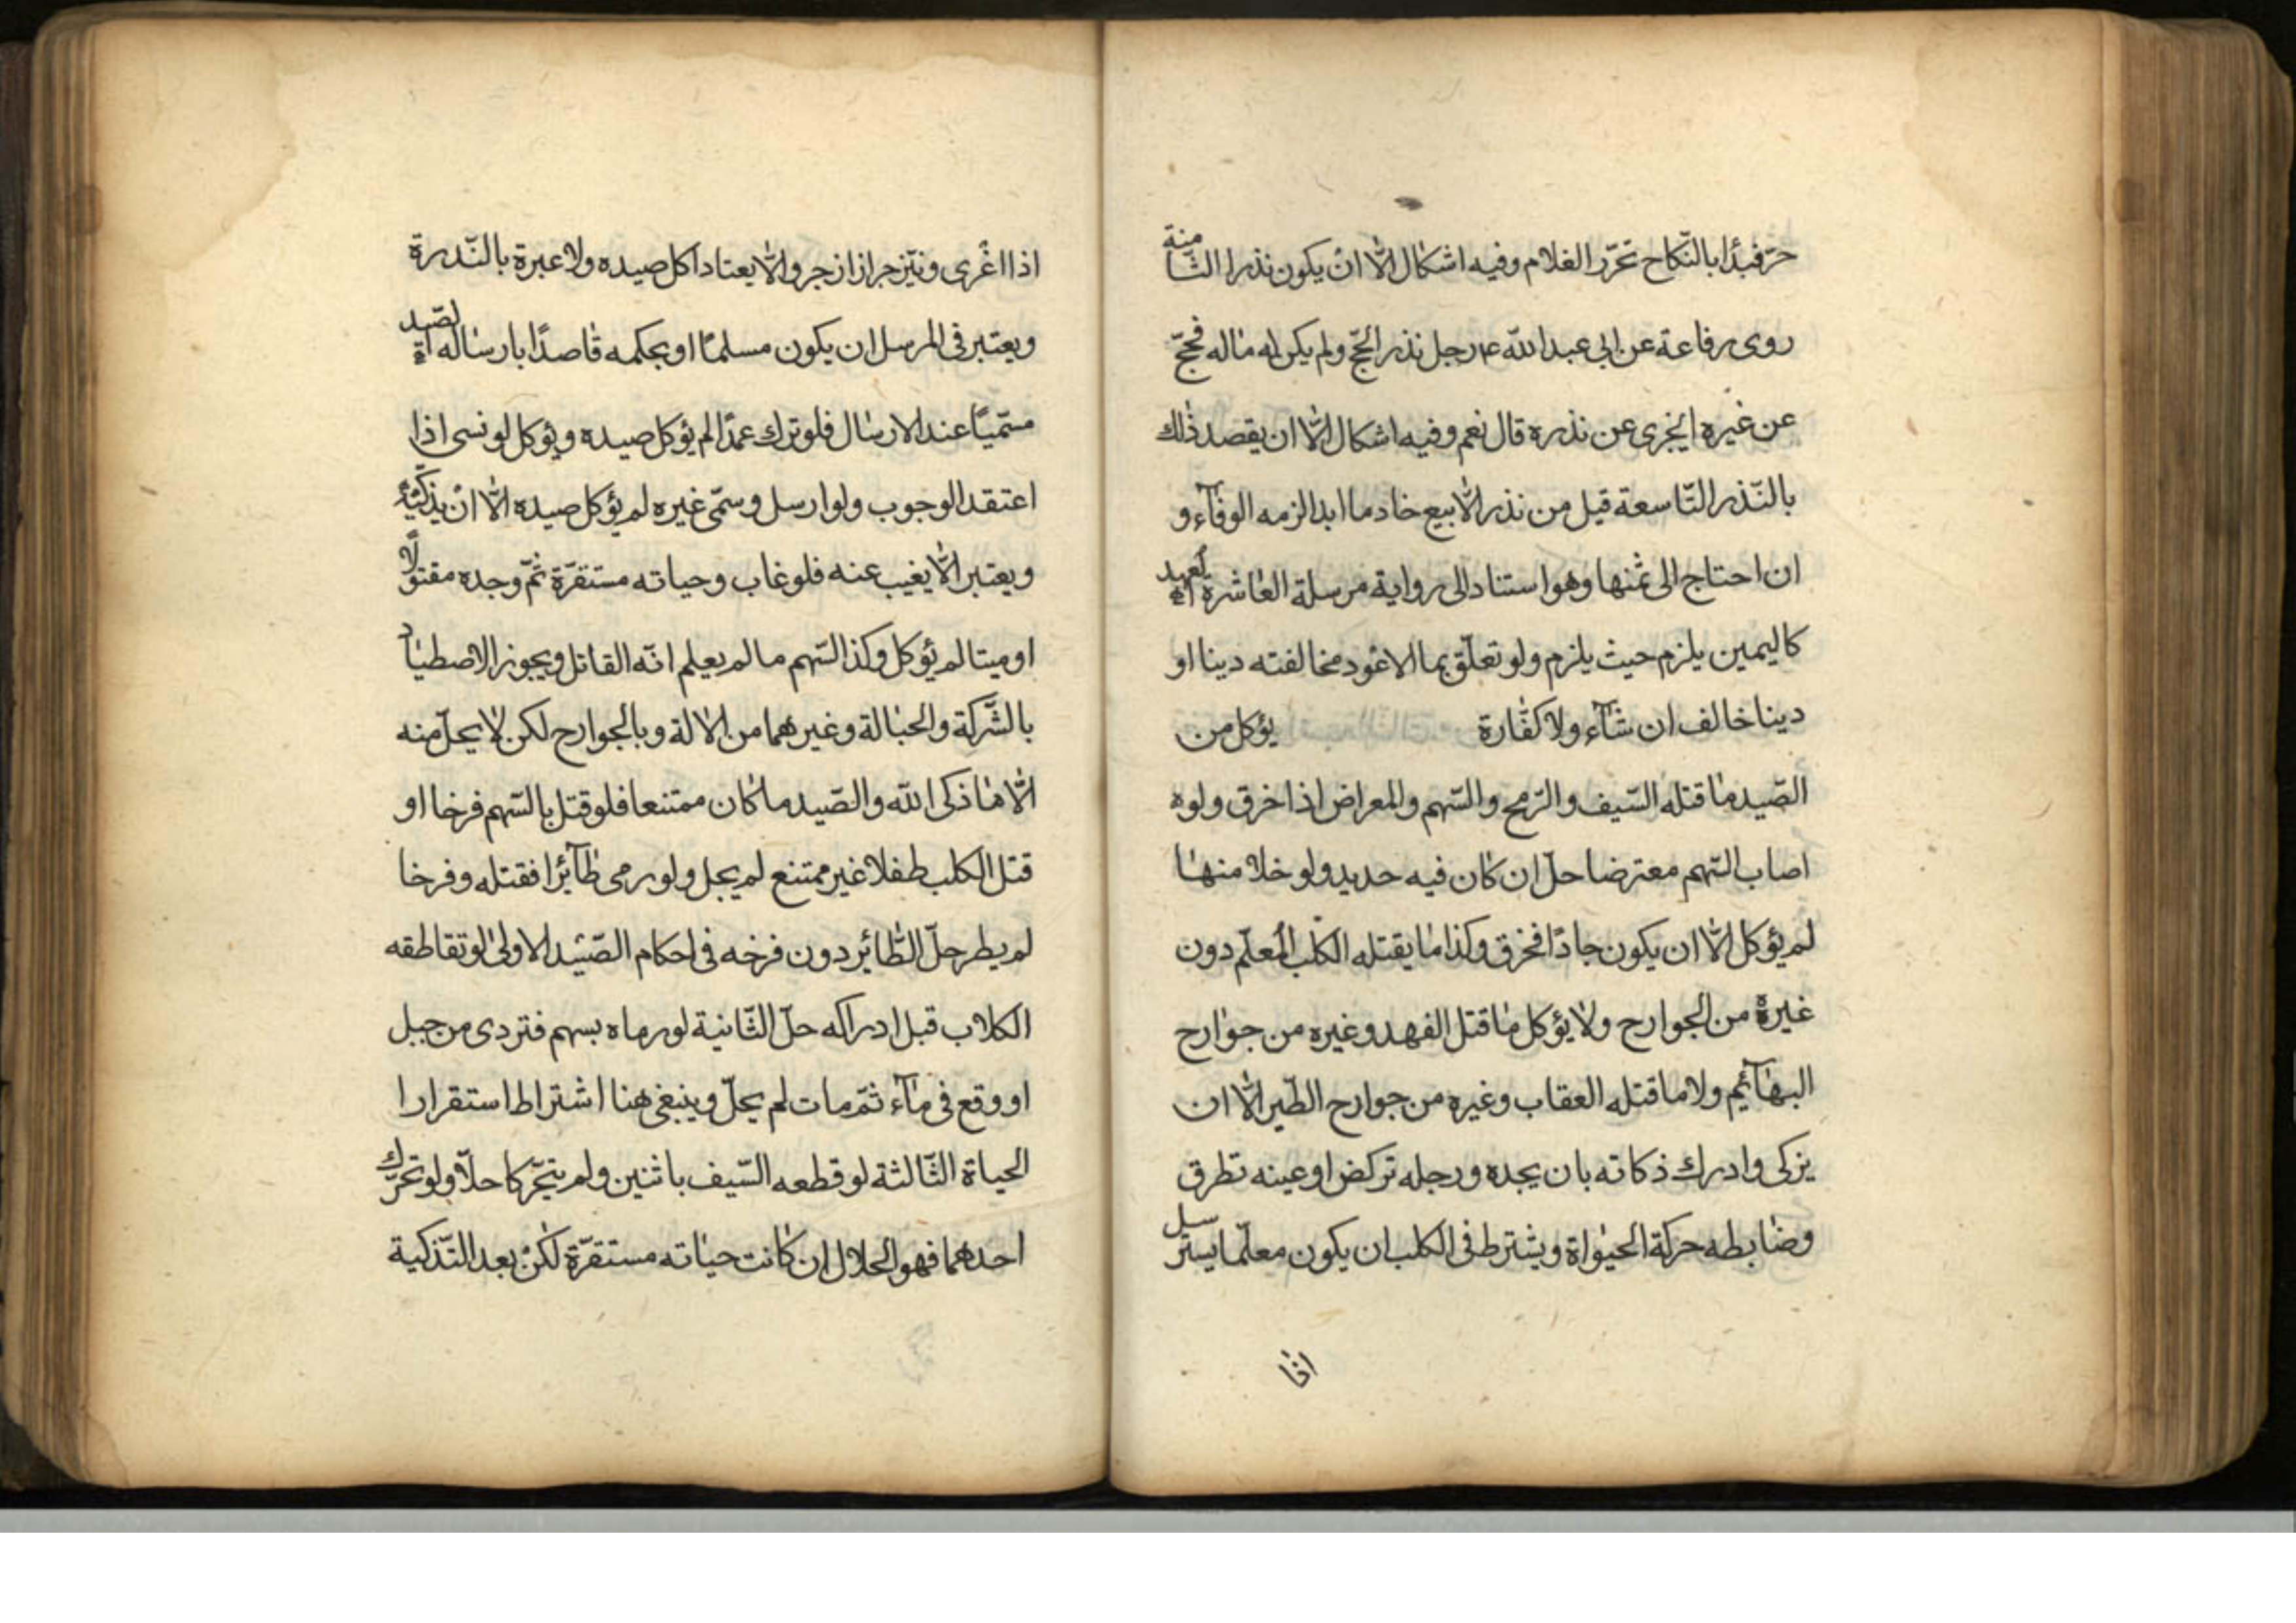 حرّ فبدأ بالنّكاح تحرّر الغلام وفيه اشكال الّا ان يكون نذرا الثّامنة
روى رفاعة عن ابى عبد اللّه ع رجل نذر الحجّ ولم يكن له مال فحجّ
عن غيره ايجزى عن نذره قال نعم وفيه اشكال الّا ان يقصد ذلك
بالنّذر التّاسعة قيل من نذر الّا يبيع خادما ابدا لزمه الوفآء و
ان احتاج الى ثمنها وهو استناد الى رواية مرسلة العاشرة العهد
كاليمين يلزم حيث يلزم ولو تعلّق بما الاعود مخالفته دينا او
دينا خالف ان شآء ولا كفّارة يؤكل من
الصّيد ما قتله السّيف والرّمح والسّهم والمعراض اذا خرق ولوه
اصاب السّهم معترضا حلّ ان كان فيه حديد ولو خلا منها
لم يؤكل الّا ان يكون حادّا فخرق وكذا ما يقتله الكلب المُعلّم دون
غيرة من الجوارح ولا يؤكل ما قتل الفهد وغيره من جوارح
البهآئم ولا ما قتله العقاب وغيره من جوارح الطّير الّا ان
يزكى وادرك ذكاته بان يجده ورجله تركض او عينه تطرق
وضابطه حركة الحيواة ويشترط فى الكلب ان يكون معلّما يسترسل
اذا
اذا اغْرى وينزجر اذا زجر والّا يعتاد اكل صيده ولا عبرة بالنّدرة
ويعتبر فى المرسل ان يكون مسلمًا او بحكمه قاصدًا بارساله الصّيد
مسّميًا عند الارسال فلو ترك عمدًا لم يؤكل صيده ويؤكل لو نسى اذا
اعتقد الوجوب ولو ارسل وسمّى غيره لم يؤكل صيده الّا انْ يذكّيه
ويعتبر الّا يغيب عنه فلو غاب وحياته مستقرّة ثمّ وجده مقتولًا
او ميتا لم يؤكل وكذا السّهم ما لم يعلم انّه القاتل ويجوز الاصطياد
بالشّركة والحبالة وغيرهما من الالة وبالجوارح لكن لا يحلّ منه
الّا ما ذكى اللّه والصّيد ما كان ممتنعا فلو قتل بالسّهم فرخا او
قتل الكلب طفلا غير ممتنع لم يحل ولو رمى طآئرا فقتله وفرخا
لم يطر حلّ الطّائر دون فرخه فى احكام الصّيد الاولى لو تقاطقه
الكلاب قبل ادراكه حلّ الثّانية لو رماه بسهم فتردى من جبل
او وقع فى مآء ثمّ مات لم يحلّ وينبغى هنا اشتراط استقرارا
الحياة الثّالثة لو قطعه السّيف باثنين ولم يتحّركا حلّا ولو تحرّك
احدهما فهو الحلال ان كانت حياته مستقرّة لكنْ بعد التّذكية